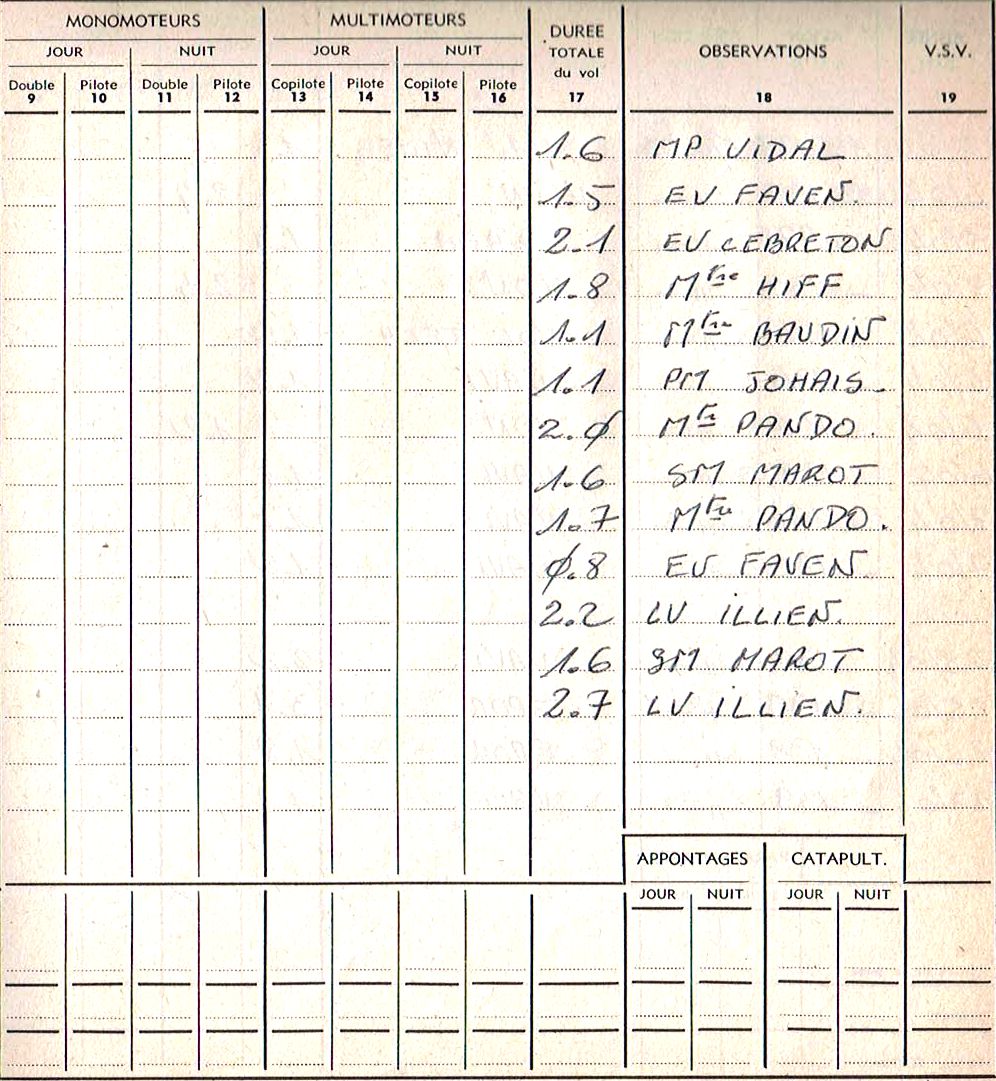 MONOMOTEURS MULTIMOTEURS DUREE TOTALE du vol OBSERVATIONS V.S.V.
JOUR NUIT JOUR NUIT
Double Pilote Double Pilote Copilote Pilote Copilote Pilote
9 10 11 12 13 14 15 16 17 18 19
1.6 MP VIDAL
1.5 EV FAVEN.
2.1 EV LEBRETON
1.8 Mtre HIFF
1.1 Mtre BAUDIN
1.1 PM JOHAIS.
2.0 Mtre PANDO.
1.6 SM MAROT
1.7 Mtre PANDO.
0.8 EV FAVEN.
2.2 LV ILLIEN.
1.6 SM MAROT
2.7 LV ILLIEN.
APPONTAGES CATAPULT.
JOUR NUIT JOUR NUIT